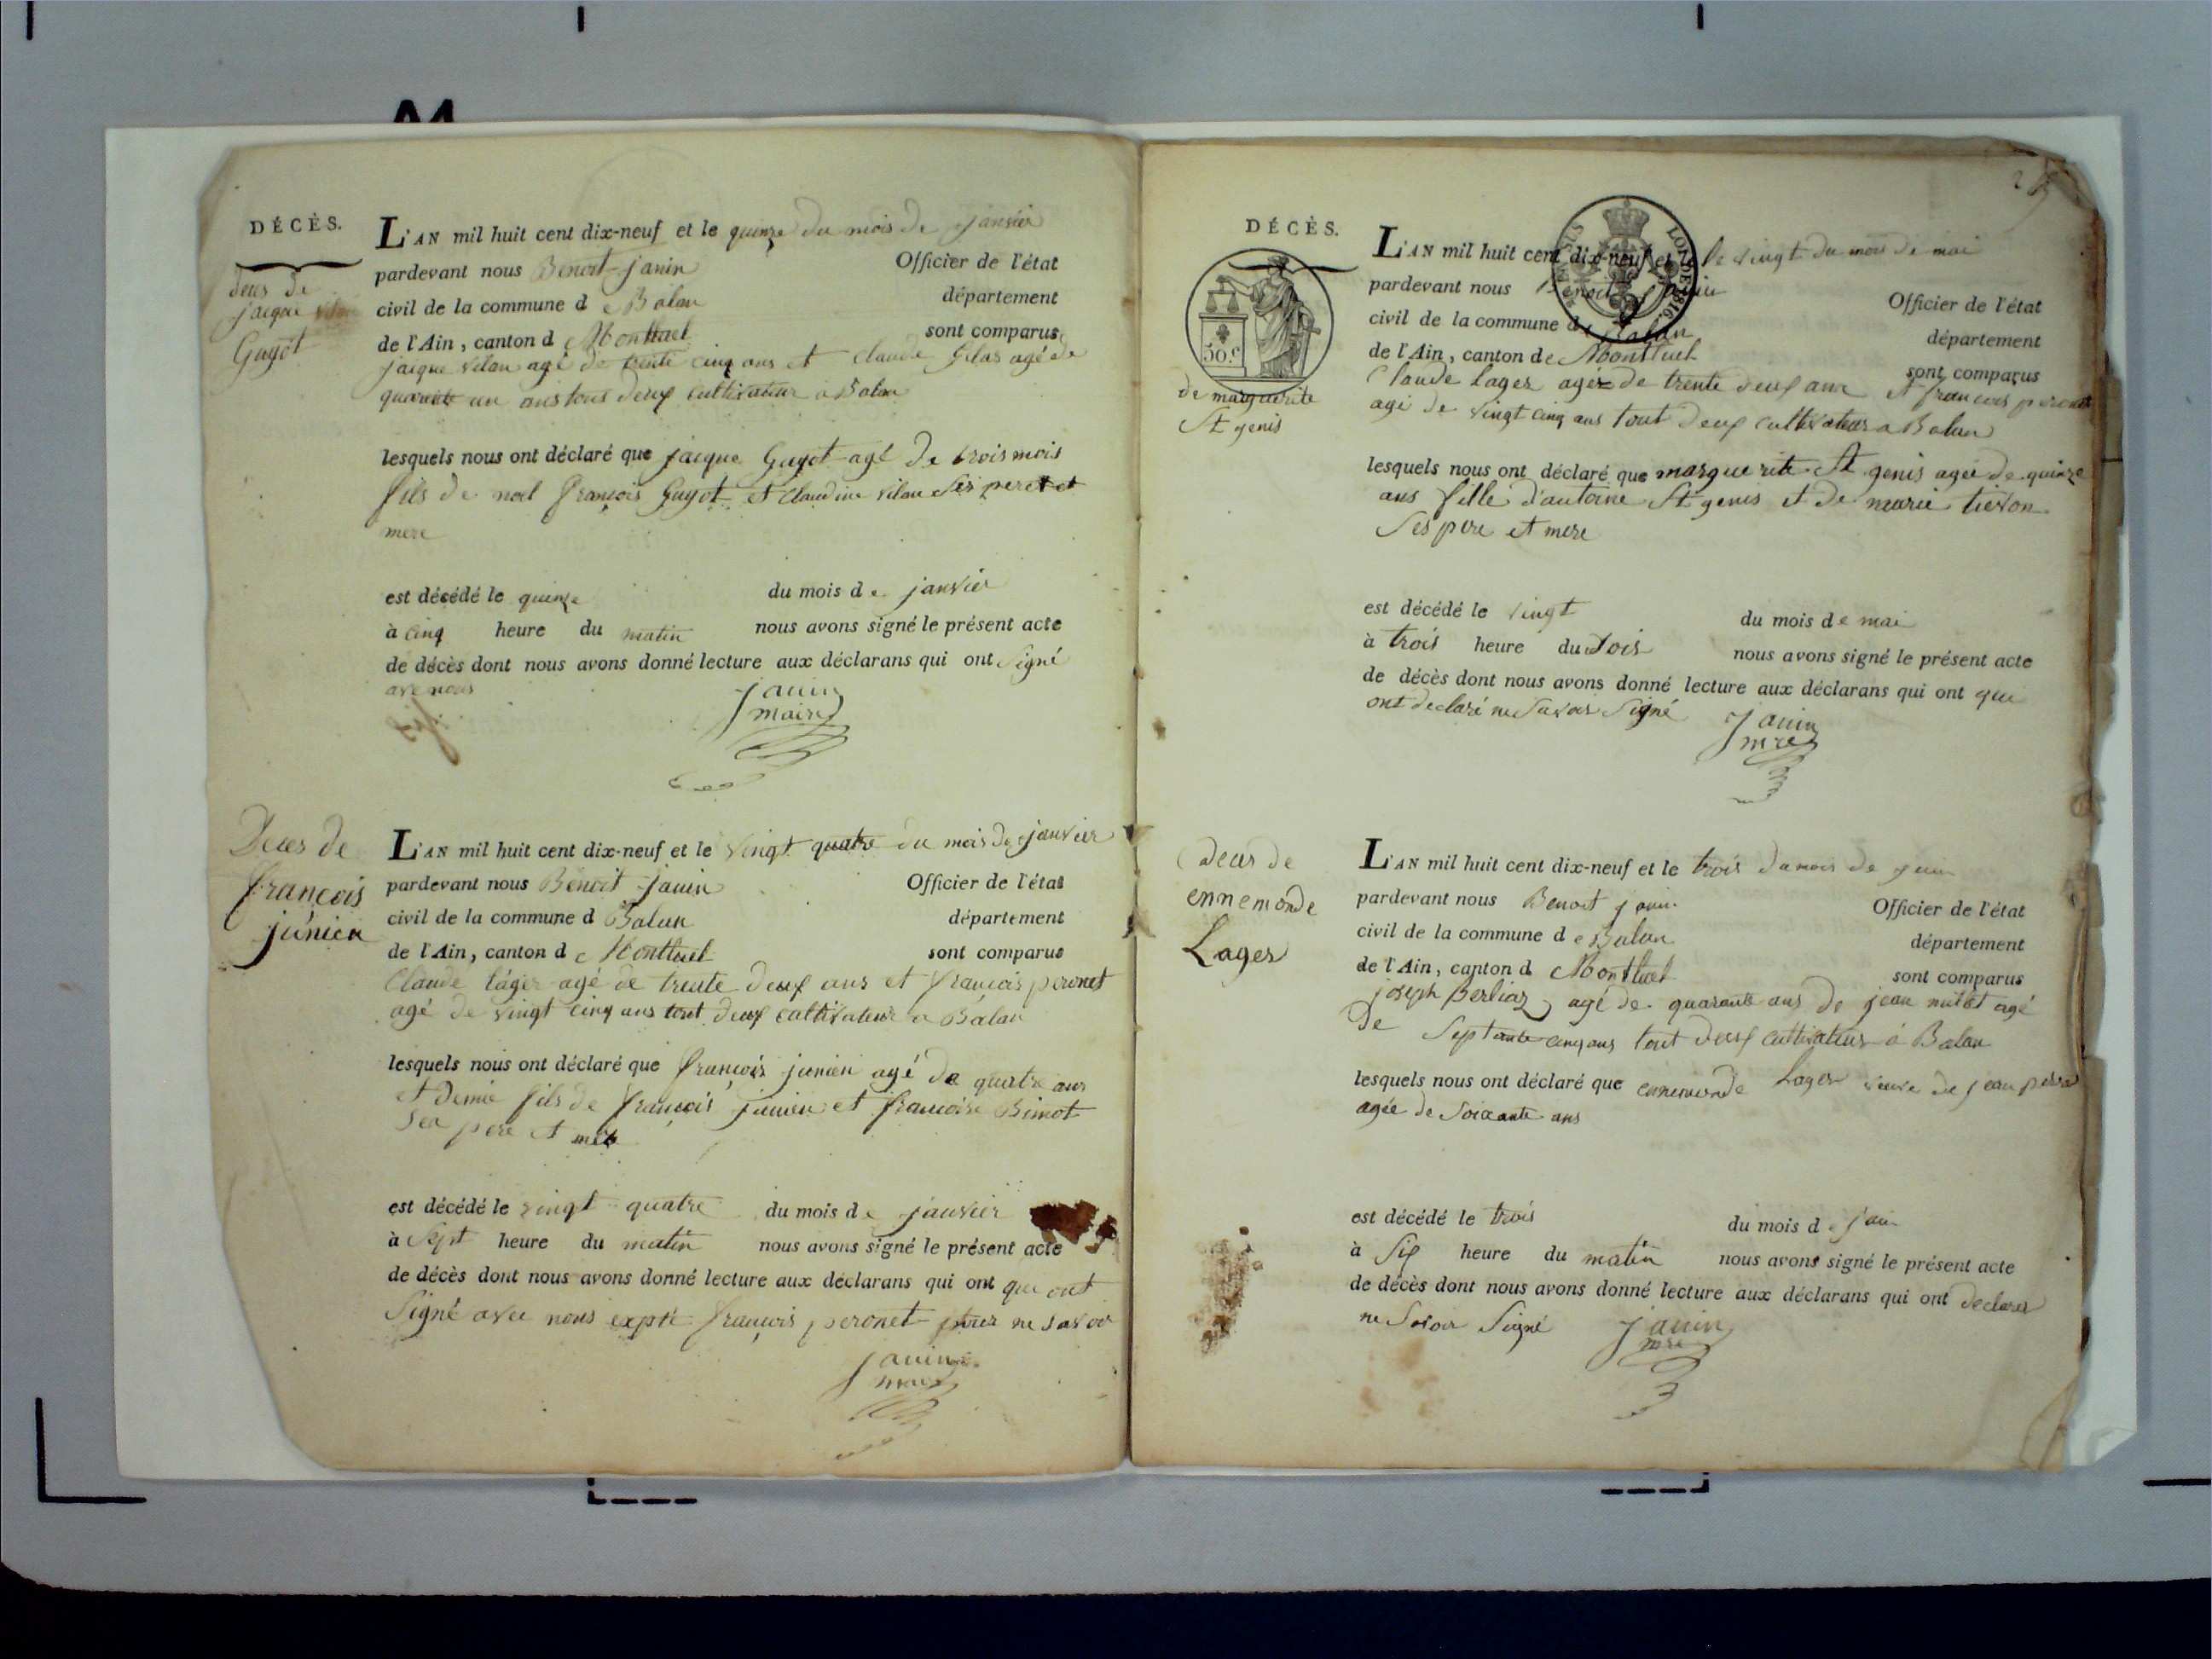 DÉCÈS.
deces de
jacque
Guyot
L'AN mil huit cent dix-neuf et le quinze du mois de janvier
pardevant nous Benoit janin Officier de l'état
civil de la commune d e Balan département
de l'Ain, canton d e Montluel sont comparus
jacque vilan agé de trente cinq ans et Claude filas agé de
quarente un ans tous deux cultivateur a Balan
lesquels nous ont déclaré que jacque Guyot agé de trois mois
fils de noel françois Guyot et Claudine vilan ses peret et
mere
est décédé le quinze du mois d e janvier
à cinq heure du matin nous avons signé le présent acte
de décès dont nous avons donné lecture aux déclarans qui ont signé
ave nous
janin
maire
Deces de
françois
junien
L'AN mil huit cent dix-neuf et le vingt quatre du mois de janvier
pardevant nous Benoit janin Officier de l'état
civil de la commune d Balan département
de l'Ain, canton d e Montluel sont comparus
Claude lager agé de trente deux ans et françois peronet
agé de vingt cinq ans tout deux cultivateur a Balan
lesquels nous ont déclaré que françois junien agé de quatre ans
et demie fils de françois junien et françoise Bimot
ses pere et mere
est décédé le vingt quatre du mois d e janvier
à sept heure du matin nous avons signé le présent acte
de décès dont nous avons donné lecture aux déclarans qui ont qui ont
signé avec nous expté françois peronet pour ne savoir
janin
maire
DÉCÈS.
50.c
LOI DE 1816.
de marguerite
St genis
L'AN mil huit cent dix-neuf et le le vingt du mois de mai
pardevant nous Benoit janin Officier de l'état
civil de la commune de Balan département
de l'Ain, canton de Montluel sont comparus
Claude Lager agéz de trente deux ans et françois peronet
agé de vingt cinq ans tout deux cultivateur a Balan
lesquels nous ont déclaré que marguerite St genis agée de quinze
ans fille d'antoine St genis et de marie tievon
ses pere et mere
est décédé le vingt du mois d e mai
à trois heure du soir nous avons signé le présent acte
de décès dont nous avons donné lecture aux déclarans qui ont qui
ont declaré ne savoir signé
janin
mre
deces de
ennemonde
Lager
L'AN mil huit cent dix-neuf et le trois du mois de juin
pardevant nous Benoit janin Officier de l'état
civil de la commune d e Balan département
de l'Ain, canton d Montluel sont comparus
joseph Berliaz agé de quarante ans de jean millet agé
de septante cinq ans tout deux cultivateur à Balan
lesquels nous ont déclaré que ennemonde Lager veuve de jean
agée de soixante ans
est décédé le trois du mois d e juin
à six heure du matin nous avons signé le présent acte
de décès dont nous avons donné lecture aux déclarans qui ont declarer
ne savoir signé
janin
mre